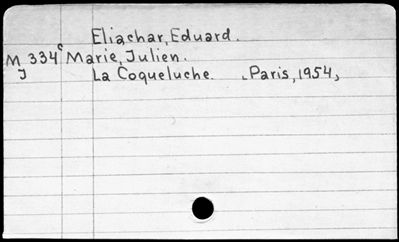 Eliachar, Eduard.
M 334c Marie, Julien.
J La Coqueluche. Paris, 1954,